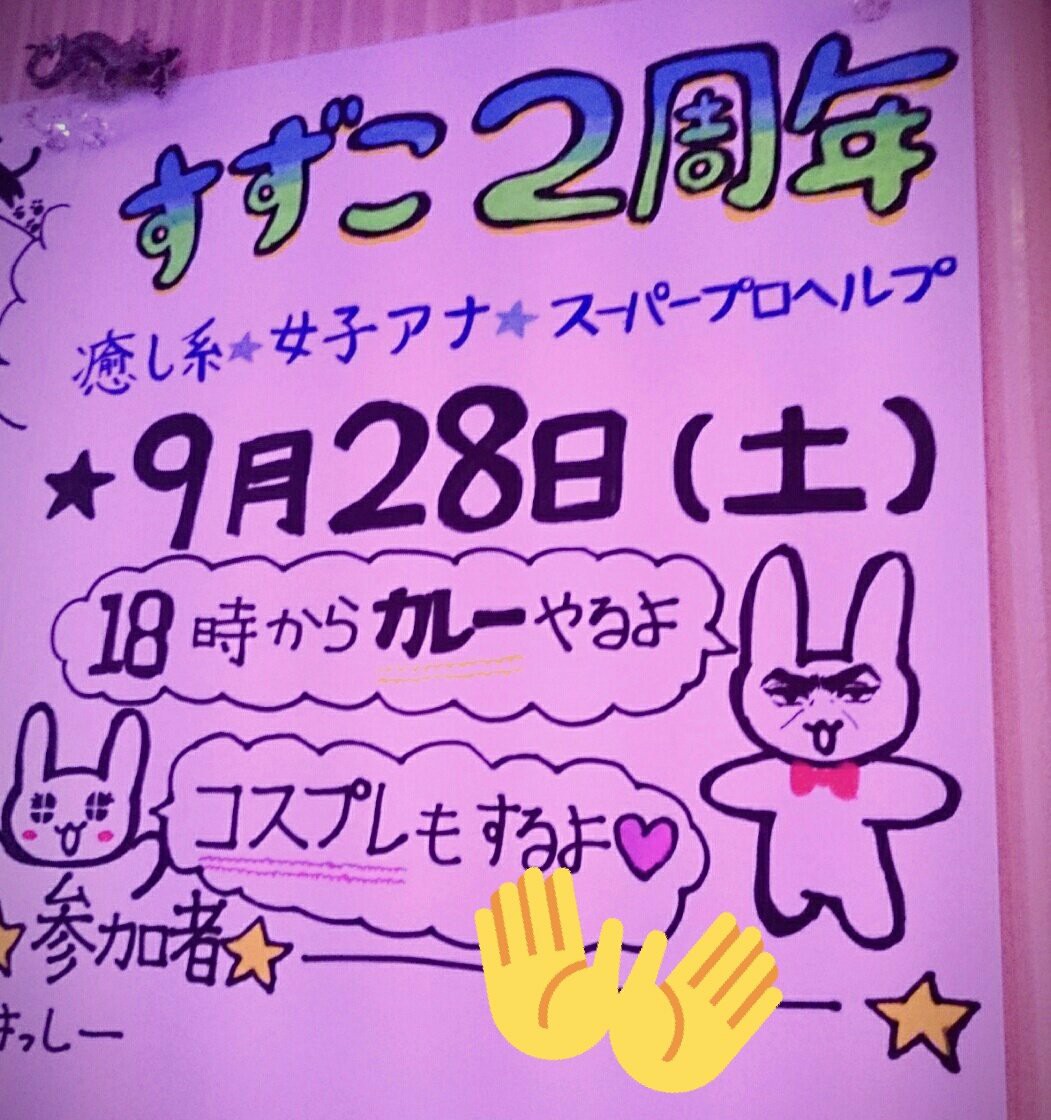 すずこ2周年
癒し系★女子アナ★スーパープロヘルプ
★9月28日(土)
18時からカレーやるよ
コスプレもするよ♥
★参加者★
まっしー